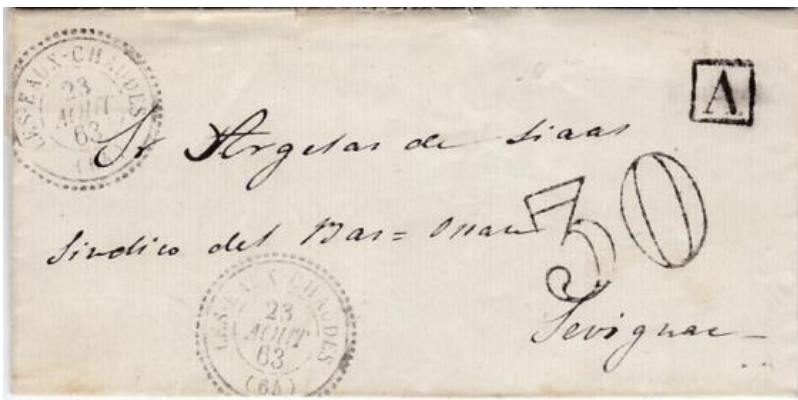 LES EAUX-CHAUDES
23
AOUT
63
(64)
A
Sr Argelas de Siaas
30
Sindico del Bas= Ossau
Sevignac
LES EAUX-CHAUDES
23
AOUT
63
(64)